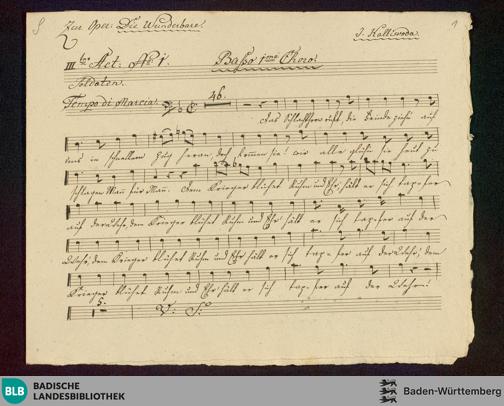 Zur Oper: Die Wunderbare!
J. Kalliwoda.
III.ter Act: No 1.
Basso 1mo Choro!
Soldaten.
Tempo di Marcia:
46.
das Schlachthorn ruft, die Feinde ziehn auf
uns in schnellem Zug heran, doch kommen sie! wir alle glühn sie
schlagen Mann für Mann. dem Krieger blühet Ruhm und Ehr, hält er sich tapfer
auf der Wehr, dem Krieger blühet Ruhm und Ehr hält er sich tapfer auf der
Wehr, dem Krieger blühet Ruhm und Ehr hält er sich tapfer auf der Wehr, dem
Krieger blühet Ruhm und Ehr hält er sich tapfer auf der Wehr!
5.
V: S:
BLB
BADISCHE
LANDESBIBLIOTHEK
Baden-Württemberg